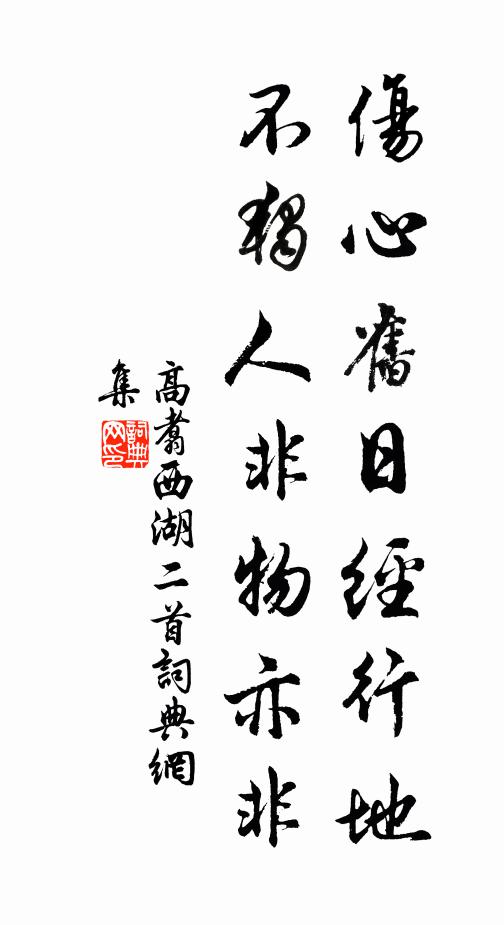 傷心舊日經行地
不獨人非物亦非
高翥西湖二首詞典網
集
詞典
网印